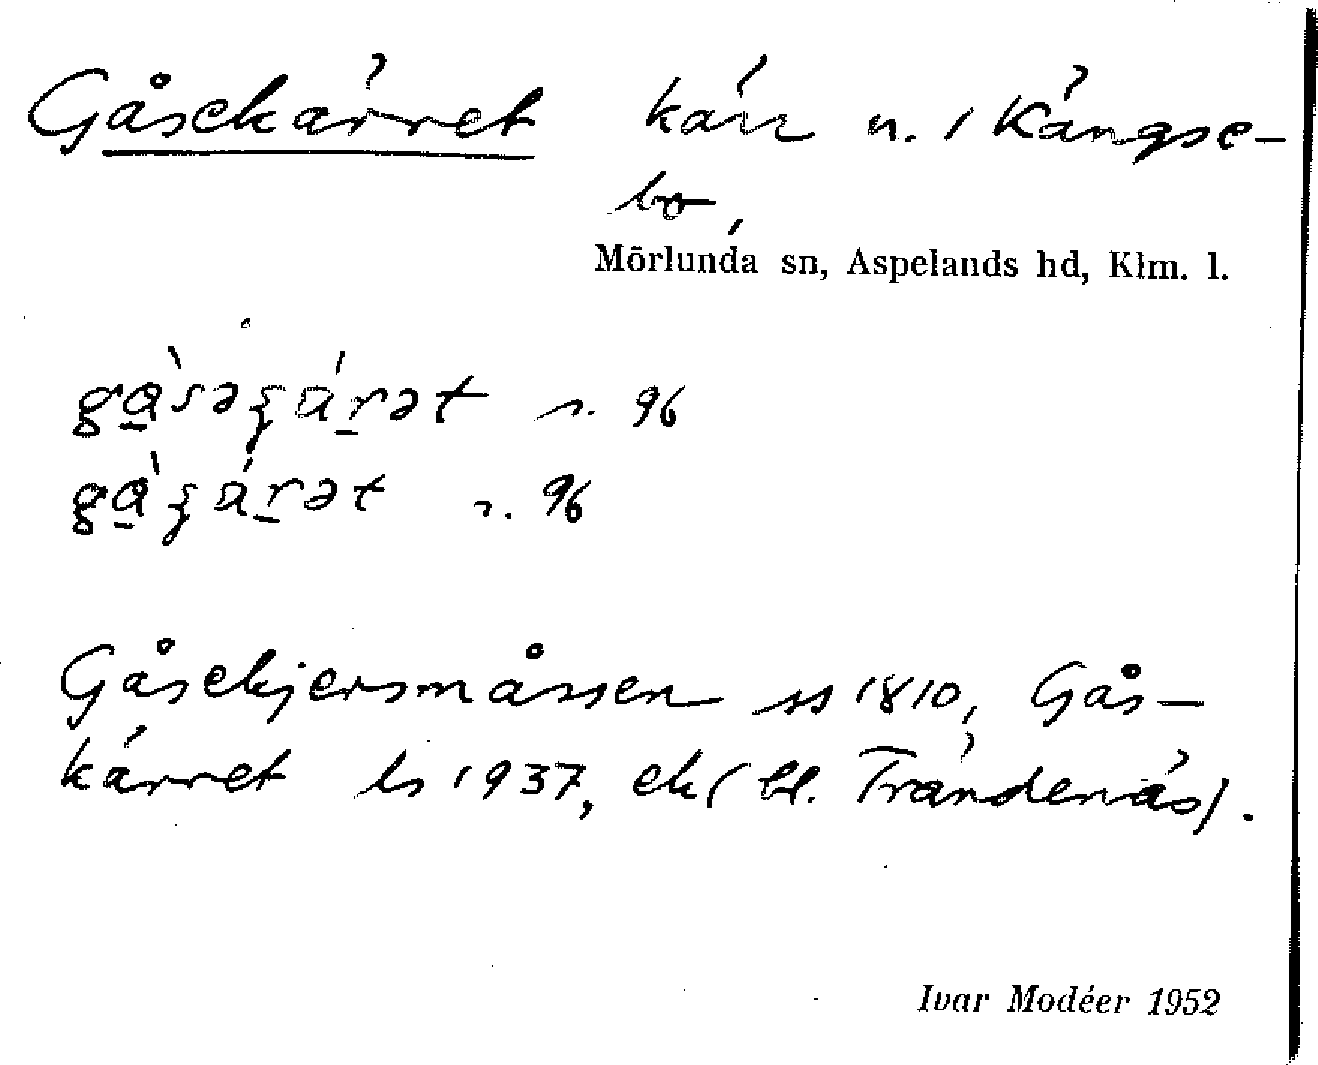 Gåsekärret kärr n. i Kängse-
bo,
Mörlunda sn, Aspelands hd, Klm. l.
n. 96
n. 96
Gåsekjersmåssen ss 1810, Gås-
kärret ls 1937, ek (bl. Trändenäs).
Ivar Modéer 1952